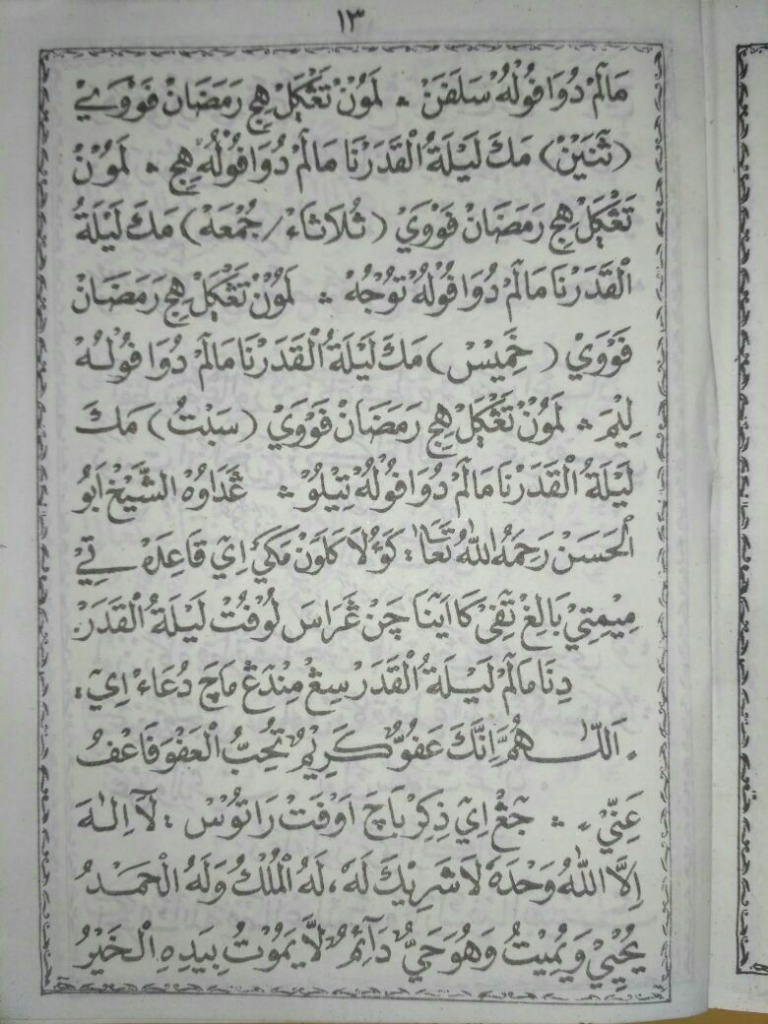 ١٣
مَالَمْ دُوَا فُوْلُهْ سَلَفَنْ ؞ لَمَوُنْ تَڠْݢَلْ هِجِ رَمَضَانْ فَوْوَيْ
(ثنَيَنْ) مَكَ لَيْلَةُ الْقَدَرْنَا مَالَمْ دُوَا فُوْلُهْ هِجِ ؞ لَمَوُنْ
تَڠْݢَلْ هِجِ رَمَضَانْ فَوْوَيْ (ثُلَاثَاءْ/جُمْعَهْ) مَكَ لَيْلَةُ
الْقَدَرْنَا مَالَمْ دُوَا فُوْلُهْ تُوْجُهْ ؞ لَمَوُنْ تَڠْݢَلْ هِجِ رَمَضَانْ
فَوْوَيْ (خَمِيْسْ) مَكَ لَيْلَةُ الْقَدَرْنَا مَالَمْ دُوَا فُوْلُهْ
لِيْمَ ؞ لَمَوُنْ تَڠْݢَلْ هِجِ رَمَضَانْ فَوْوَيْ (سَبْتُ) مَكَ
لَيْلَةُ الْقَدَرْنَا مَالَمْ دُوَا فُوْلُهْ تِيْلُوْ ؞ ڠَدَاوُهْ الشَّيْخْ اَبُو
الْحَسَنْ رَحِمَهُ اللهُ تَعَا : كَوُلَا كَلَوَنْ مَكَيْ اِيَ قَاعِدَهْ تِيْ
مِيْمِتِيْ بَالِغْ تَڤِيْ كَا اَيْنَا چَنْ ڠَرَاسَ لُوْفُتْ لَيْلَةُ الْقَدَرْ.
دِنَا مَالَمْ لَيْلَةُ الْقَدَرْ سِڠْ مِنْدَڠْ مَاچَ دُعَاءْ اِيَ :
. اَللّٰهُمَّ اِنَّكَ عَفُوٌّ كَرِيْمٌ تُحِبُّ الْعَفْوَ فَاعْفُ
عَنِّيْ . ؞ جَڠْ اِيَ ذِكِرْ بَاچَ اَوْفَتْ رَاتُوْسْ : لَآ اِلٰهَ
اِلَّا اللهُ وَحْدَهُ لَا شَرِيْكَ لَهُ ، لَهُ الْمُلْكُ وَلَهُ الْحَمْدُ
يُحْيِيْ وَيُمِيْتُ وَهُوَ حَيٌّ دَآئِمٌ لَّا يَمُوْتُ بِيَدِهِ الْخَيْرُ